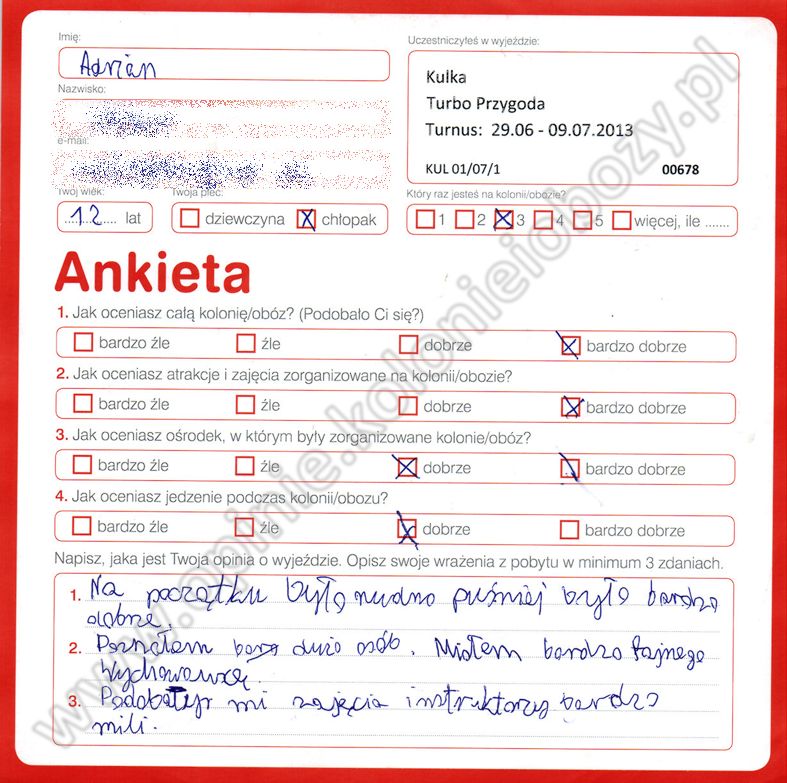 Imię:
Adrian
Uczestniczyłeś w wyjeździe:
Kulka
Turbo Przygoda
Turnus: 29.06 - 09.07.2013
KUL 01/07/1 00678
Nazwisko:
e-mail:
Twój wiek:
12 lat
Twoja płeć:
dziewczyna chłopak
Który raz jesteś na kolonii/obozie?
1 2 3 4 5 więcej, ile .......
Ankieta
1. Jak oceniasz całą kolonię/obóz? (Podobało Ci się?)
bardzo źle źle dobrze bardzo dobrze
2. Jak oceniasz atrakcje i zajęcia zorganizowane na kolonii/obozie?
bardzo źle źle dobrze bardzo dobrze
3. Jak oceniasz ośrodek, w którym były zorganizowane kolonie/obóz?
bardzo źle źle dobrze bardzo dobrze
4. Jak oceniasz jedzenie podczas kolonii/obozu?
bardzo źle źle dobrze bardzo dobrze
Napisz, jaka jest Twoja opinia o wyjeździe. Opisz swoje wrażenia z pobytu w minimum 3 zdaniach.
1. Na początku było nudno puśniej było bardzo
dobrze.
2. Poznałem dużo osób. Miałem bardzo fajnego
Wychowawcę.
3. mi zajęcia instruktorzy bardzo
mili.
www.opinie.kolonieiobozy.pl